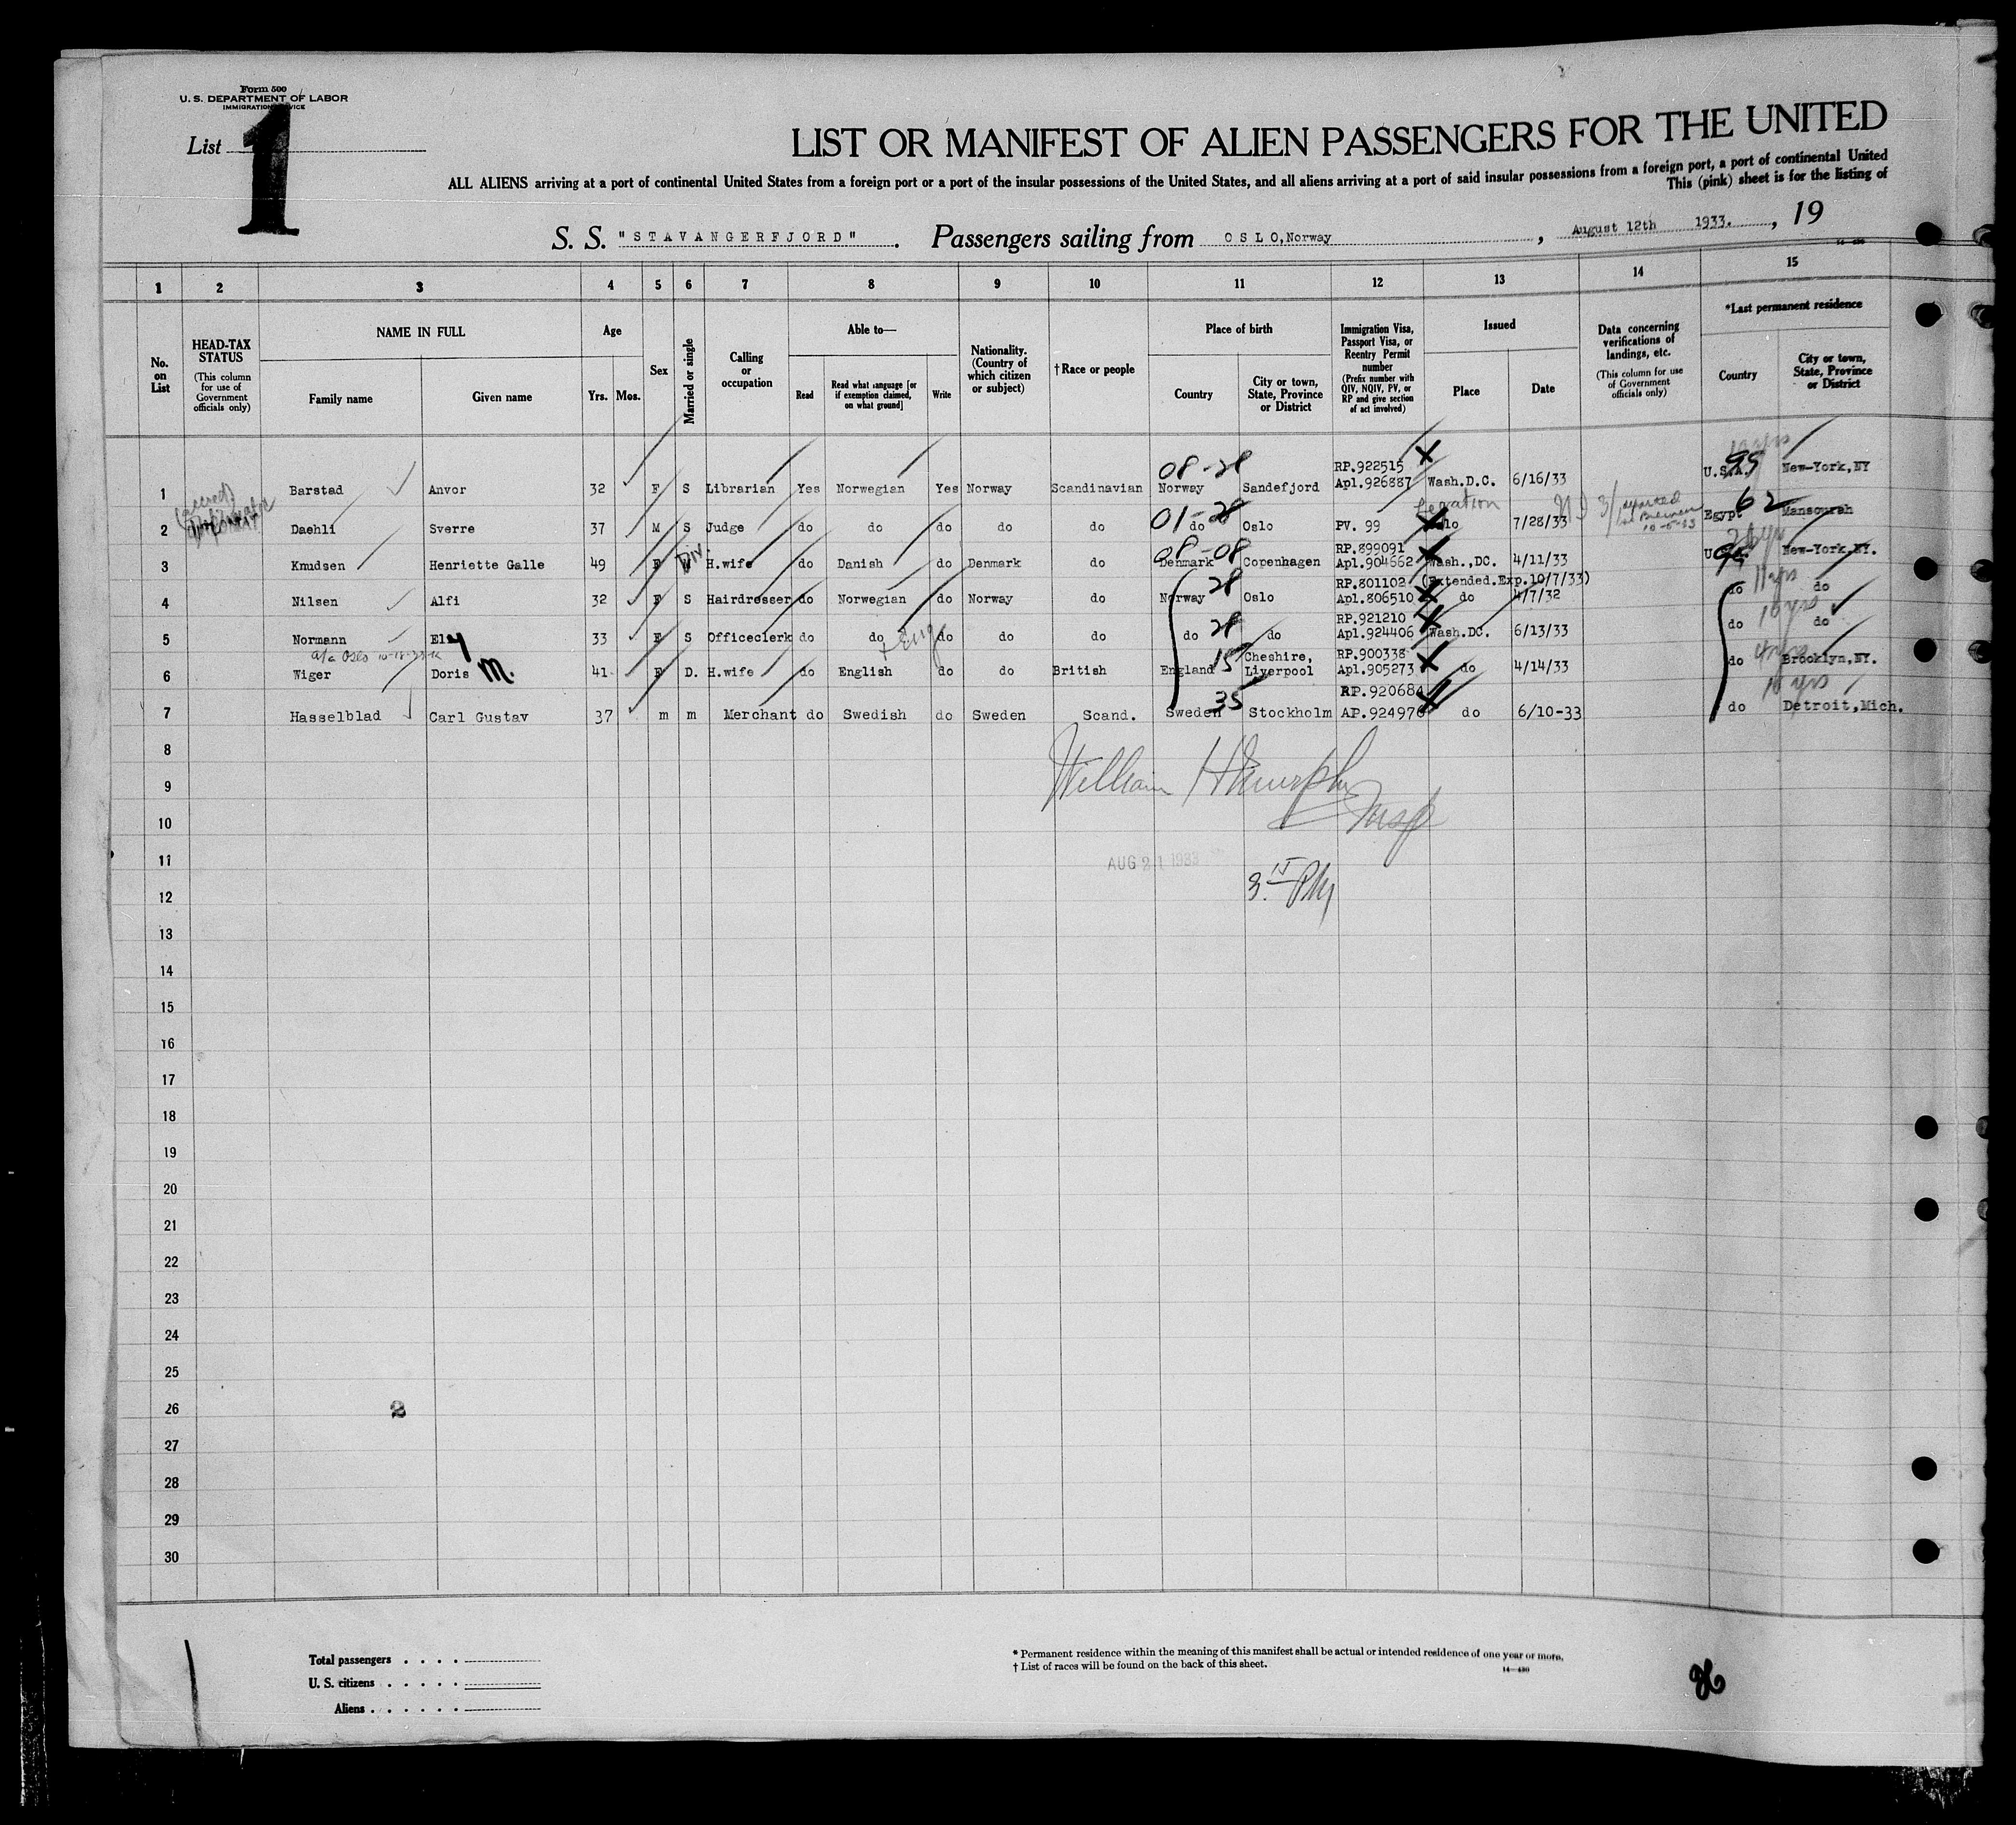 Form 500
U. S. DEPARTMENT OF LABOR
IMMIGRATION SERVICE
List 1
LIST OR MANIFEST OF ALIEN PASSENGERS FOR THE UNITED
ALL ALIENS arriving at a port of continental United States from a foreign port or a port of the insular possessions of the United States, and all aliens arriving at a port of said insular possessions from a foreign port, a port of continental United
This (pink) sheet is for the listing of
S. S. "STAVANGERFJORD". Passengers sailing from OSLO, Norway, August 12th 1933. , 19
14—430
1 2 3 4 5 6 7 8 9 10 11 12 13 14 15
No. on List
HEAD-TAX STATUS (This column for use of Government officials only)
NAME IN FULL Family name Given name
Age Yrs. Mos.
Sex
Married or single
Calling or occupation
Able to— Read Read what language [or if exemption claimed, on what ground] Write
Nationality. (Country of which citizen or subject)
†Race or people
Place of birth Country City or town, State, Province or District
Immigration Visa, Passport Visa, or Reentry Permit number (Prefix number with QIV, NQIV, PV, or RP and give section of act involved)
Issued Place Date
Data concerning verifications of landings, etc. (This column for use of Government officials only)
*Last permanent residence Country City or town, State, Province or District
08-28 RP.922515 X 95
1 Barstad Anvor 32 F S Librarian Yes Norwegian Yes Norway Scandinavian Norway Sandefjord Apl.926887 Wash.D.C. 6/16/33 U.S.A. New-York,NY
Legation
01-28 62
2 Daehli Sverre 37 M S Judge do do do do do do Oslo PV. 99 Oslo 7/28/33 Egypt Mansourah
Div. 08-08 RP.899091 X 95
3 Knudsen Henriette Galle 49 F H.wife do Danish do Denmark do Denmark Copenhagen Apl.904662 Wash.,DC. 4/11/33 U.S. New-York,NY.
28 RP.801102 (Extended.Exp.10/7/33) 11 yrs
4 Nilsen Alfi 32 F S Hairdresser do Norwegian do Norway do Norway Oslo Apl.806510 X do 4/7/32 do do
28 RP.921210 X 10 yrs
5 Normann Elsy 33 F S Officeclerk do do + Eng do do do do do Apl.924406 Wash.DC. 6/13/33 do do
15 Cheshire, RP.900338
6 Wiger Doris M. 41 F D. H.wife do English do do British England Liverpool Apl.905273 X do 4/14/33 do Brooklyn,NY.
35 RP.920684 10 yrs
7 Hasselblad Carl Gustav 37 m m Merchant do Swedish do Sweden Scand. Sweden Stockholm AP.924976 X do 6/10-33 do Detroit,Mich.
8
William H Murphy
9
Insp
10
11 AUG 21 1933
12 3 15 PM
13
14
15
16
17
18
19
20
21
22
23
24
25
26 2
27
28
29
30
Total passengers . . . .
U. S. citizens . . . . .
Aliens . . . . . .
* Permanent residence within the meaning of this manifest shall be actual or intended residence of one year or more.
† List of races will be found on the back of this sheet.
14—430